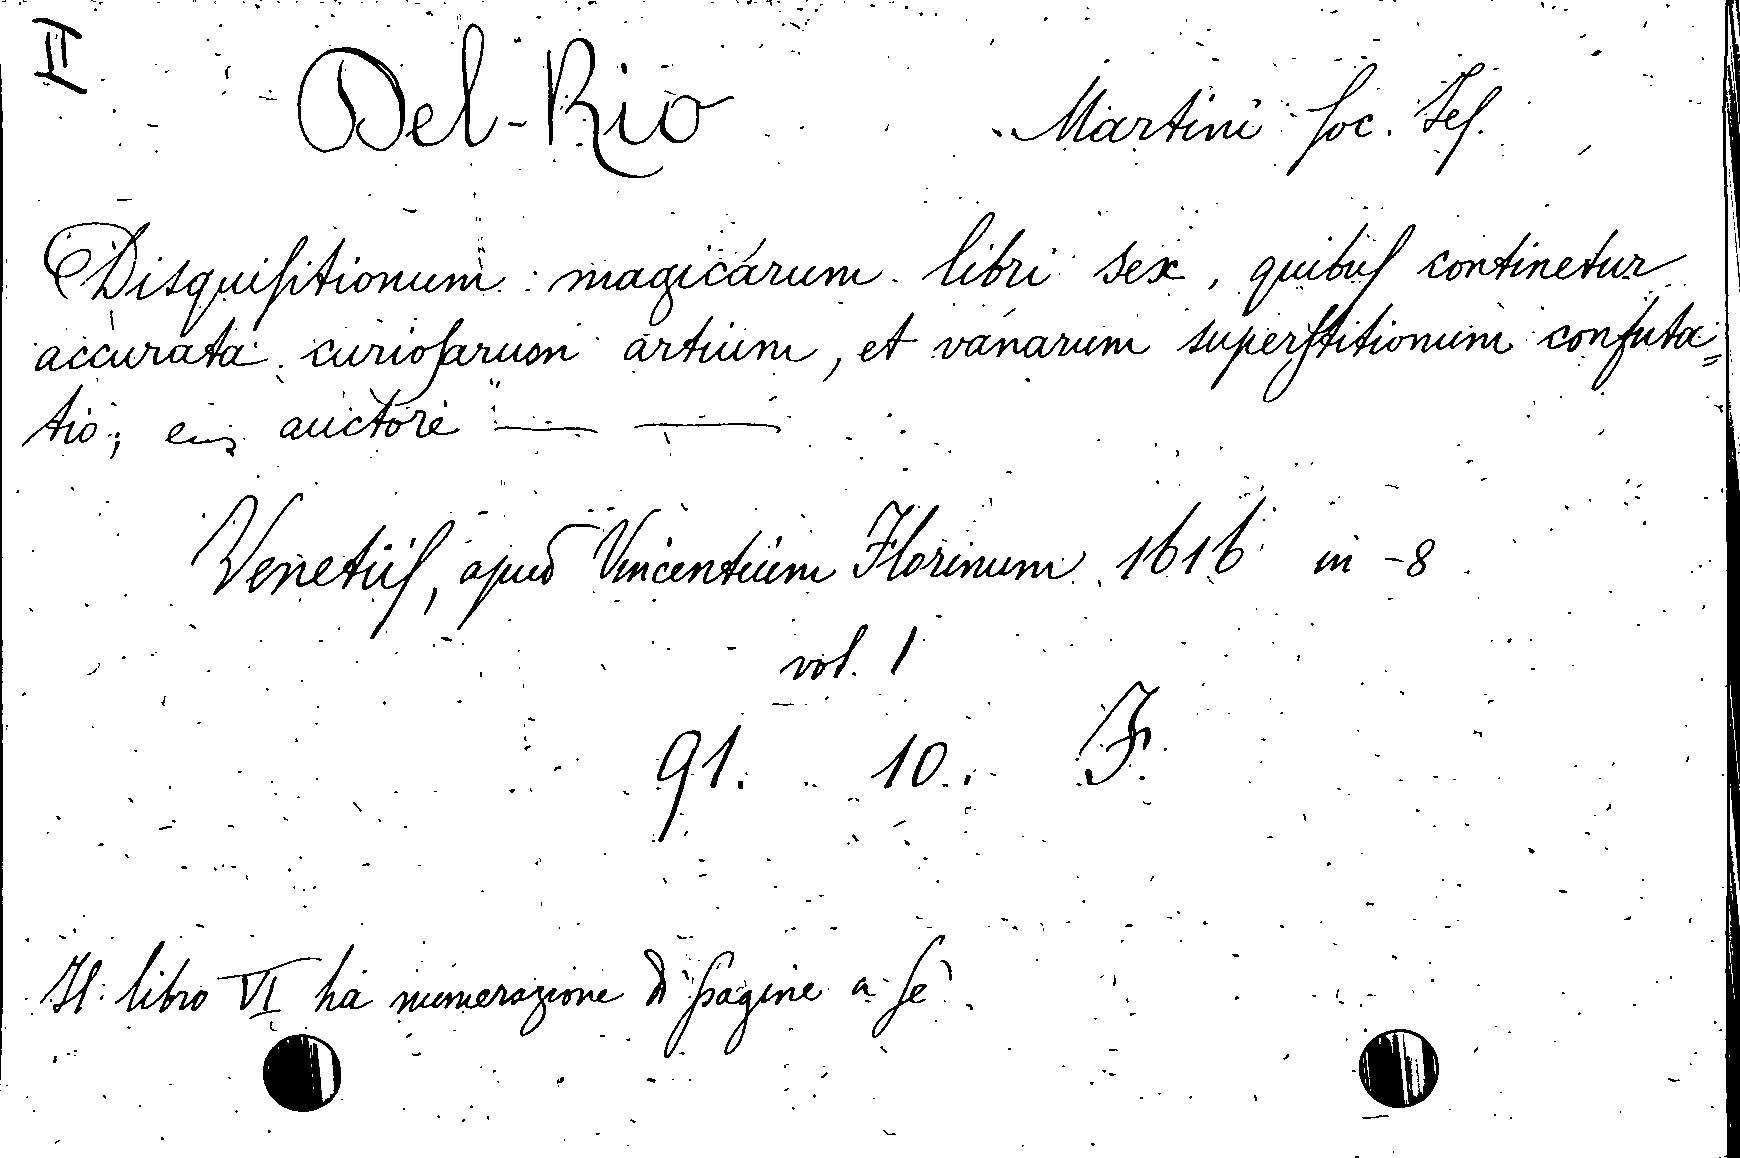 II
Del-Rio Martini Soc. Jes.
Disquisitionum magicarum libri sex, quibus continetur
accurata curiosarum artium, et vanarum superstitionum confuta=
tio; auctore — —
Venetiis, apud Vincentium Florinum 1616 in-8
vol. 1
91. 10. F.
Il libro VI ha numerazione di pagine a sè.